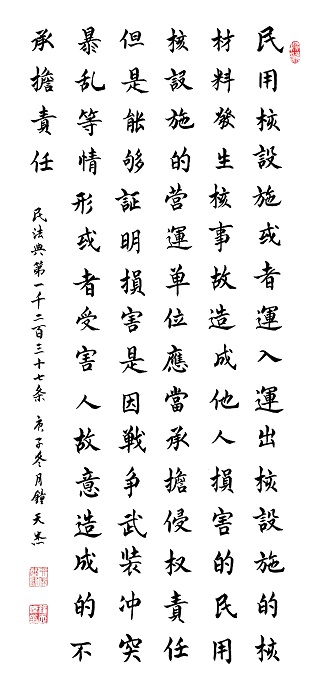 民用核設施或者運入運出核設施的核
材料發生核事故造成他人損害的民用
核設施的营運单位應當承擔侵权責任
但是能够証明損害是因戦争武装冲突
暴乱等情形或者受害人故意造成的不
承擔責任
民法典第一千二百三十七条 庚子冬月鐘天杰